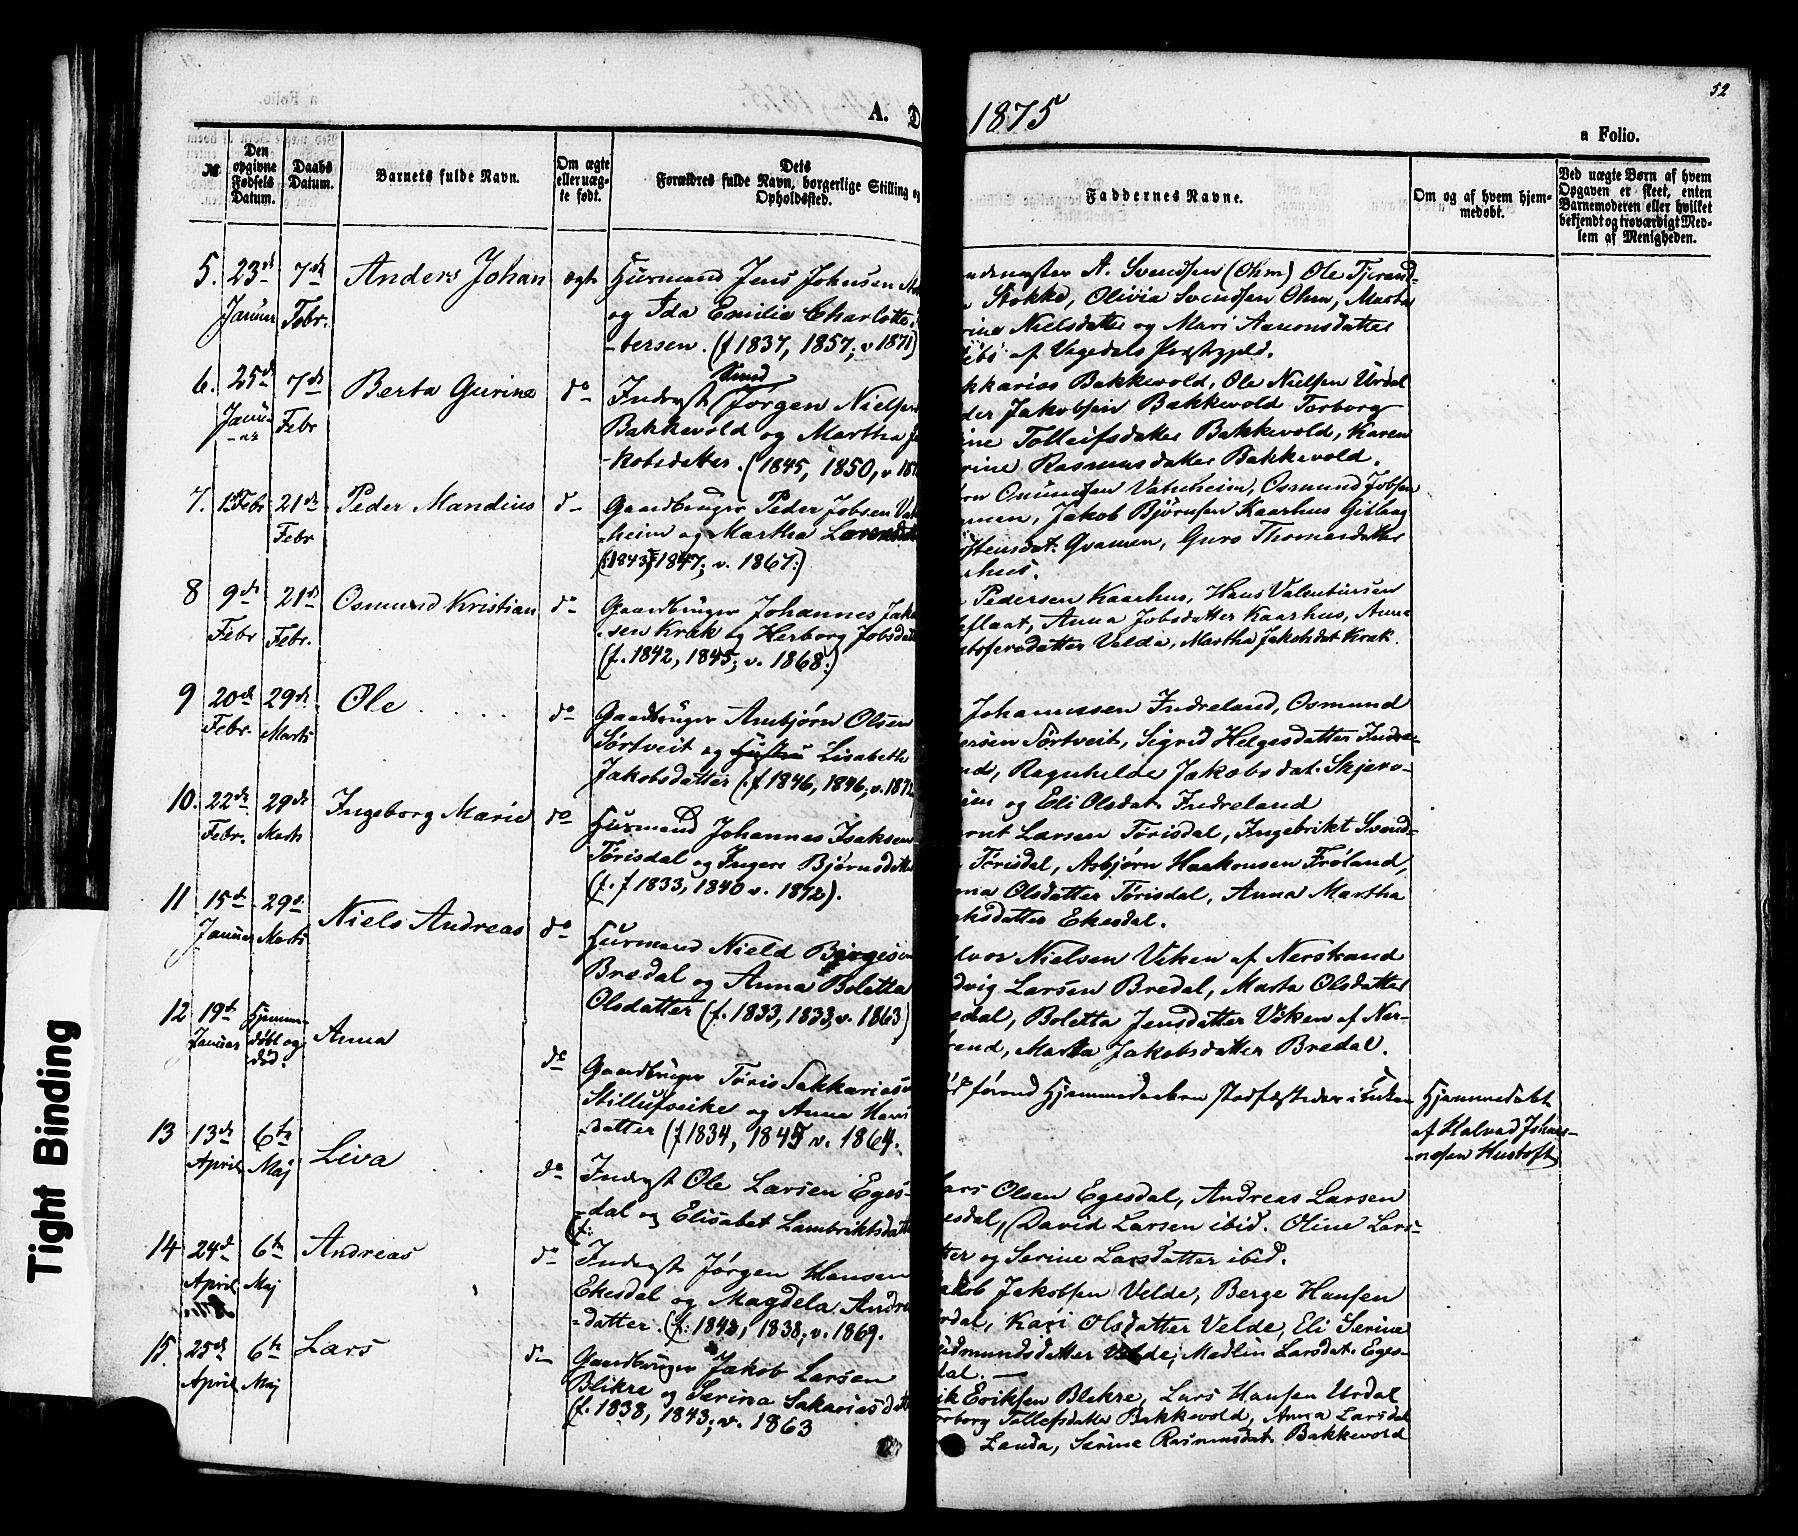 52
A. D
1875
a Folio.
№
Den opgivne Fødsels Datum.
Daabs Datum.
Barnets fulde Navn.
Om ægte eller uæg-te født.
Dets Forældres fulde Navn, borgerlige Stilling og Opholdssted.
Faddernes Navne.
Om og af hvem hjem-medøbt.
Ved uægte Børn af hvem Opgaven er skeet, enten Barnemoderen eller hvilket bekjendt og troværdigt Med-lem af Menigheden.
5. 23de Januar 7de Febr. Anders Johan ægte Husmand Jens Johnsen
og Ida Emilie Charlotte
-bertsen. (f 1837, 1857; v 1871)
A. Svendsen (Ohm) Ole Tjerand-
Stokke, Olivia Svendsen Ohm, Marta
rine Nielsdatter og Mari Aanonsdatter
af Vegedals Præstegjeld.
6. 25de Januar 7de Febr Berta Gurine do Inderst Jørgen Nielsen
Bakkevold og Martha J
-kobsdatter. (1845, 1850, v 18
kkarias Bakkevold, Ole Nielsen Urdal
der Jakobsen Bakkevold Torborg
ine Tolleifsdatter Bakkevold, Karen
rine Rasmusdatter Bakkevold.
7. 1ste Febr 21de Febr Peder Mandius d- Gaardbruger Peder Jobsen Vat
-heim og Martha Larsdatter
(1843, 1847; v. 1867.)
ørn Osmundsen Vatneheim, Osmund Jobsen
amen, Jakob Bjørnsen Kaarhus Gitlaug
stensdat. Qvamen, Guro Thomasdatter
rhus.
8 9de Febr 21de Febr. Osmund Kristian do Gaardbruger Johannes Jako
-sen Krak og Herborg Jobsdat
(f. 1842, 1845; v. 1868.)
Pedersen Kaarhus, Hans Valentinsen
flaat, Anna Jobsdatter Kaarhus, Anna
stofersdatter Velde, Martha Jakobsdat Krak.
9 20de Febr. 29de Marts Ole do Gaardbruger Asbjørn Olsen
Sørtveit og Hustru Lisabeth
Jakobsdatter (f 1846, 1846, v. 1872
Johannessen Indreland, Osmund
ersen Sørtveit, Sigrid Helgesdatter Indre-
nd, Ragnhilde Jakobsdat. Skjero-
ien og Eli Olsdat. Indreland
10. 22de Febr. 29de Marts Ingeborg Marie do Husmand Johannes Isaksen
Tørisdal og Ingere Bjørnsdatter
(f. f 1833, 1840 v. 1872).
ernt Larsen Tørisdal, Ingebrikt Svend-
Tørisdal, Asbjørn Haakonsen Frøland,
na Olsdatter Tørisdal, Anna Martha
aksdatter Ekesdal.
11 15de Januar 29de Marts Niels Andreas do Husmand Nield Børgesen
Bredal og Anna Boletta
Olsdatter (f. 1833, 1833, v. 1863)
lvor Nielsen Viken af Nerstrand
dvig Larsen Bredal, Marta Olsdatter
edal, Boletta Jensdatter Viken af Ner-
rand, Marta Jakobsdatter Bredal.
12 19de Januar Hjemme-døbt og død. Anna do Gaardbruger Tøris Sakkariasen
Stillufseike og Anna Hans
-datter (f 1834, 1845 v. 1864.
førend Hjemmedaaben stadfæstedes i Kirken
Hjemmedøbt
af Halvad Johan-
-nesen Hustoft
13 13de April 6te Maj Liva do Inderst Ole Larsen Eges-
-dal og Elisabet Lambriktsdatter
(f:
Lars Olsen Egesdal, Andreas Larsen
esdal, David Larsen ibid. Oline Lars-
tter og Serine Larsdatter ibid.
14 24de April 6te Maj Andreas do Inderst Jørgen Hansen
Ekesdal og Magdela Andre
-datter. (f: 1842, 1838; v. 1869.
akob Jakobsen Velde, Berge Hansen
rdal, Kari Olsdatter Velde, Eli Serine
udmundsdatter Velde; Madlin Larsdat. Eges-
dal. —
15. 25de April 6te Maj Lars d- Gaardbruger Jakob Larsen
Blikre og Serina Sakariasdatter
(f. 1838, 1843; v. 1863
rik Eriksen Blekre, Lars Hansen Urdal
Torborg Tollefsdatter Bakkevold, Anna Larsdat.
Landa, Serine Rasmusdat. Bakkevold
Tight Binding